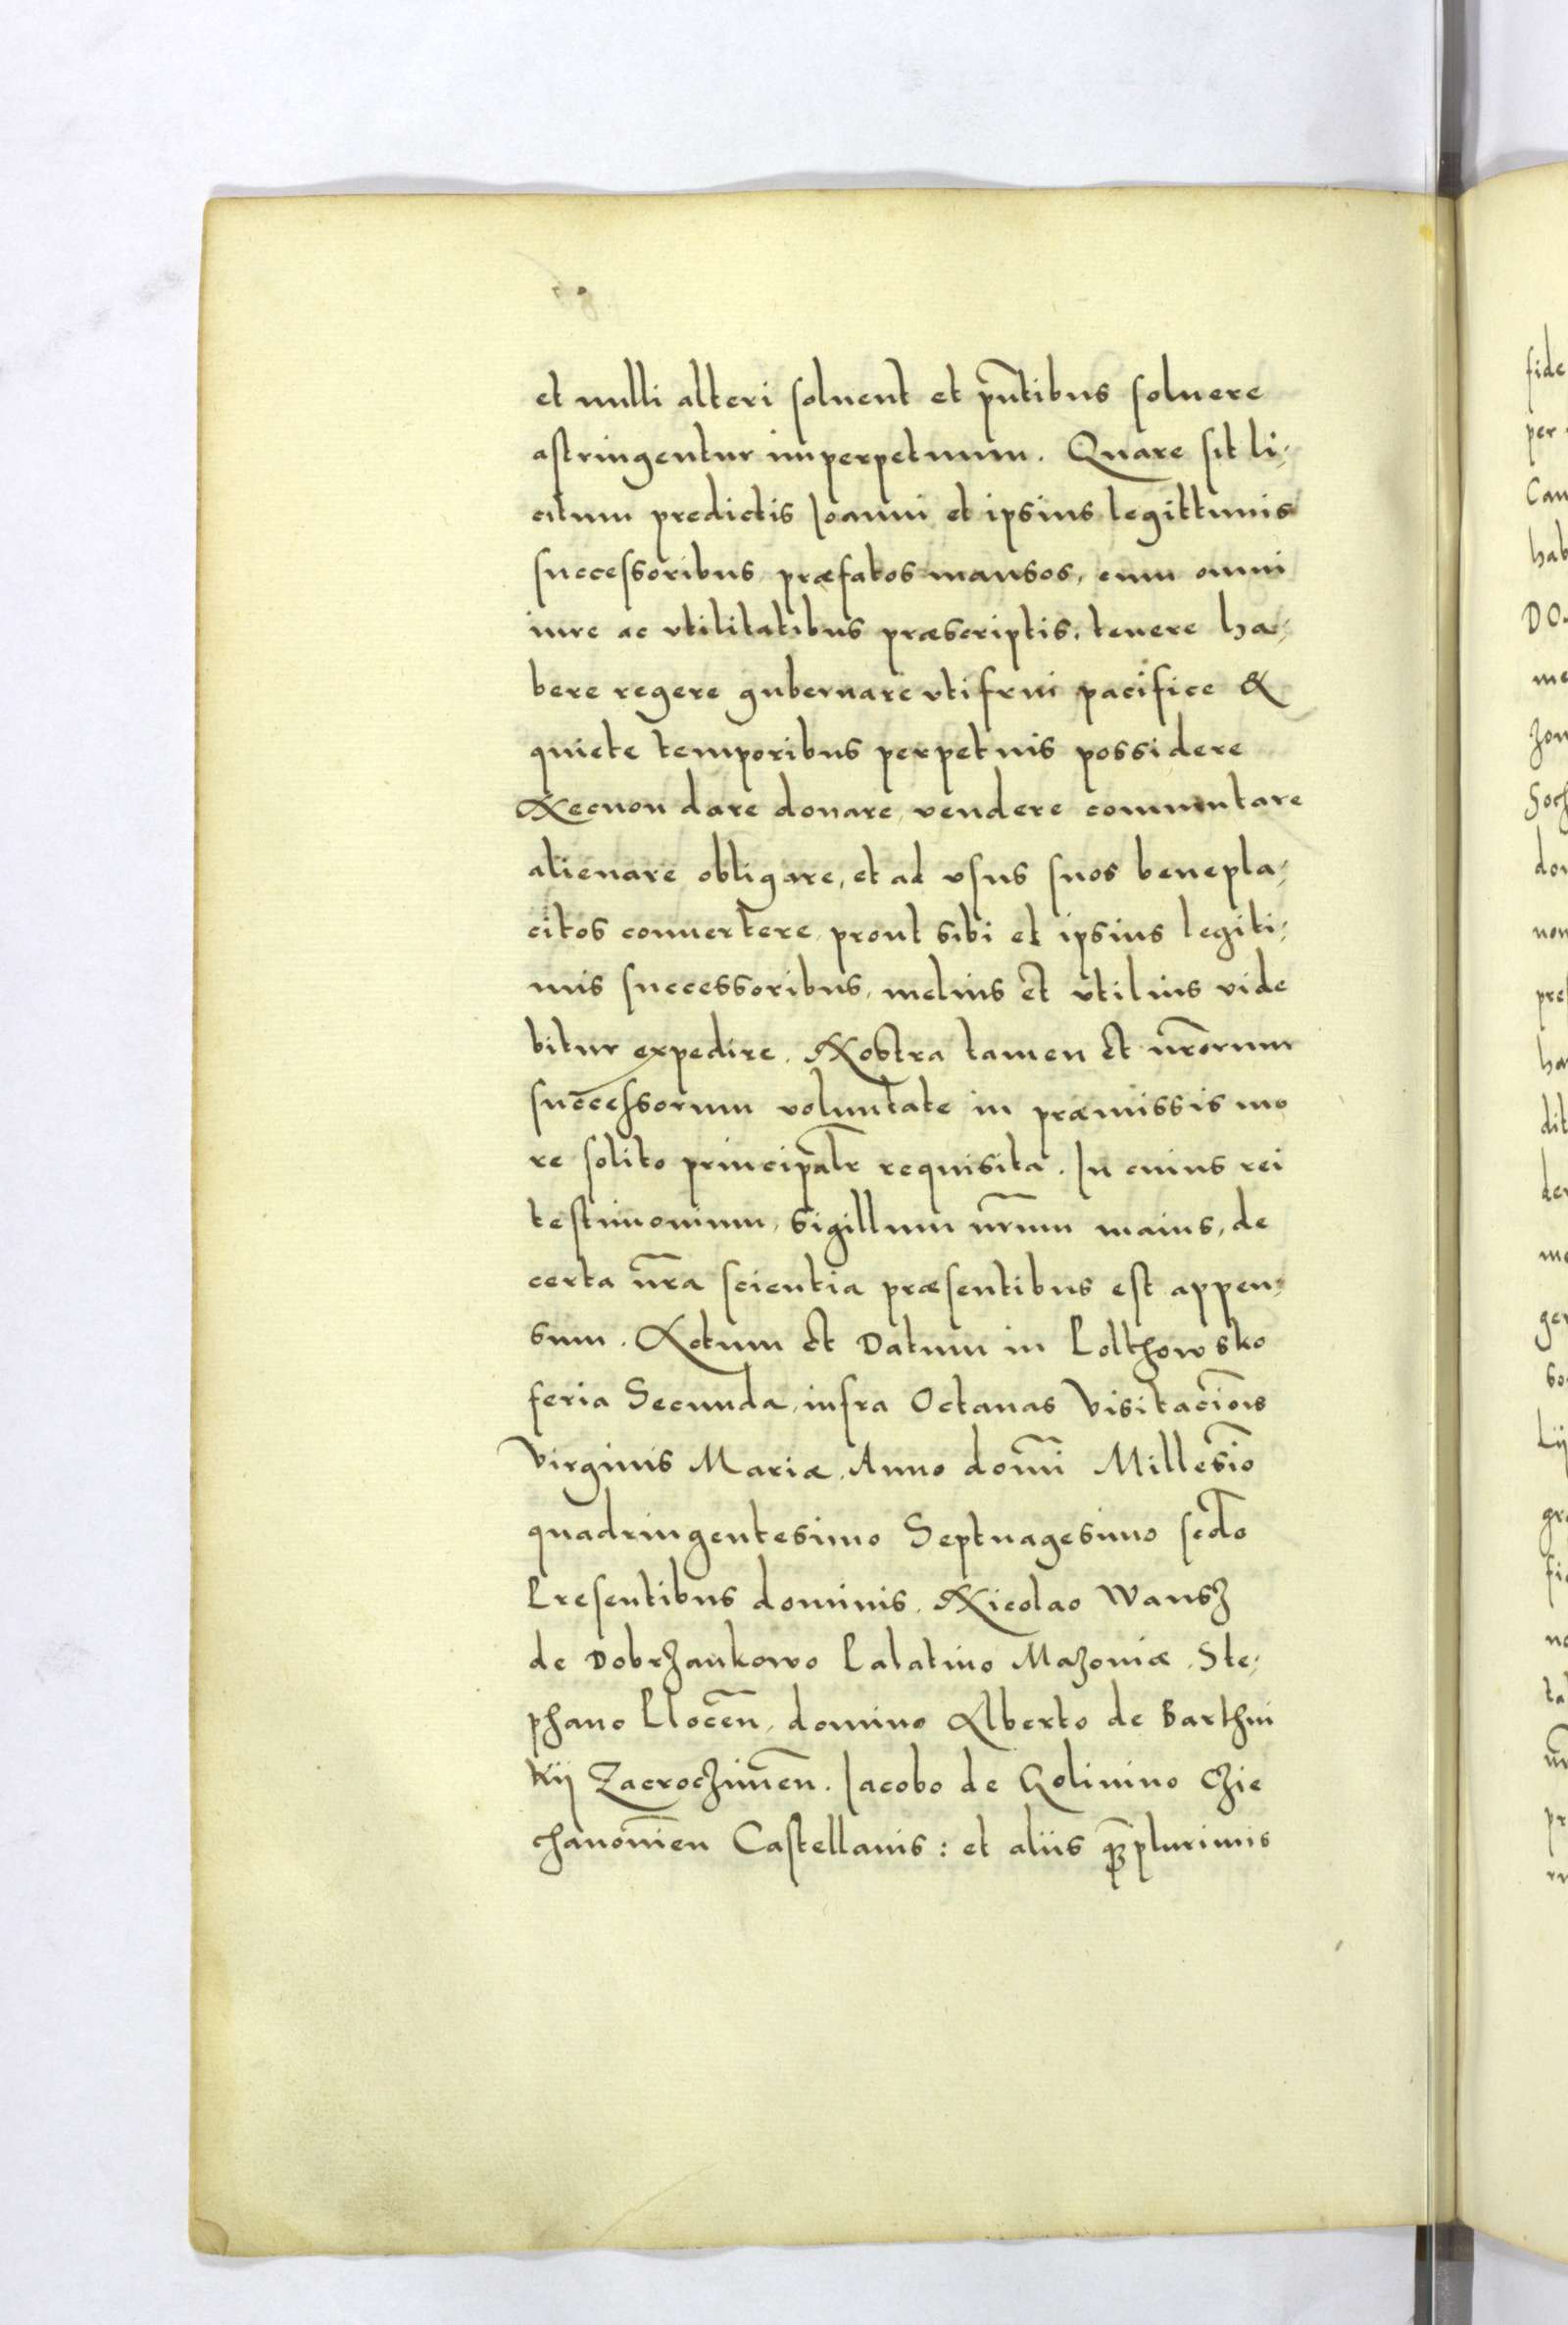 et nulli alteri soluent et pn̄tibus soluere
astringentur imperpetuum. Quare sit li-
citum predictis Joanni et ipsius legittimis
successoribus, præfatos mansos, cum omni
iure ac vtilitatibus præscriptis, tenere ha-
bere regere gubernare vtifrui pacifice &
quiete temporibus perpetuis possidere
Necnon dare donare, vendere commutare
alienare obligare, et ad vsus suos benepla-
citos conuertere, prout sibi et ipsius legiti-
mis successoribus, melius et vtilius vide
bitur expedire. Nostra tamen et nr̄orum
successorum voluntate in præmissis mo
re solito principalr̄ requisita. In cuius rei
testimonium, sigillum nr̄um maius, de
certa nr̄a scientia præsentibus est appen-
sum. Actum et Datum in Polthowsko
feria Secunda, infra Octauas Visitacīois
Virginis Mariæ. Anno domī Millesīo
quadringentesimo Septuagesimo scd̄o
Presentibus dominis. Nicolao Wansz
de Dobrzankowo Palatino Mazouiæ. Ste-
phano Plocēn, domino Alberto de Barthni
kij Zacroczimēn. Jacobo de Golimino Czie
chanouīen Castellanis: et aliis qꝫplurimis
fide
per
Can
hab
DO
me
Zon
Soch
don
non
pre
ha
dit
der
me
ger
so
Lij
gra
fi
na
ta
pr